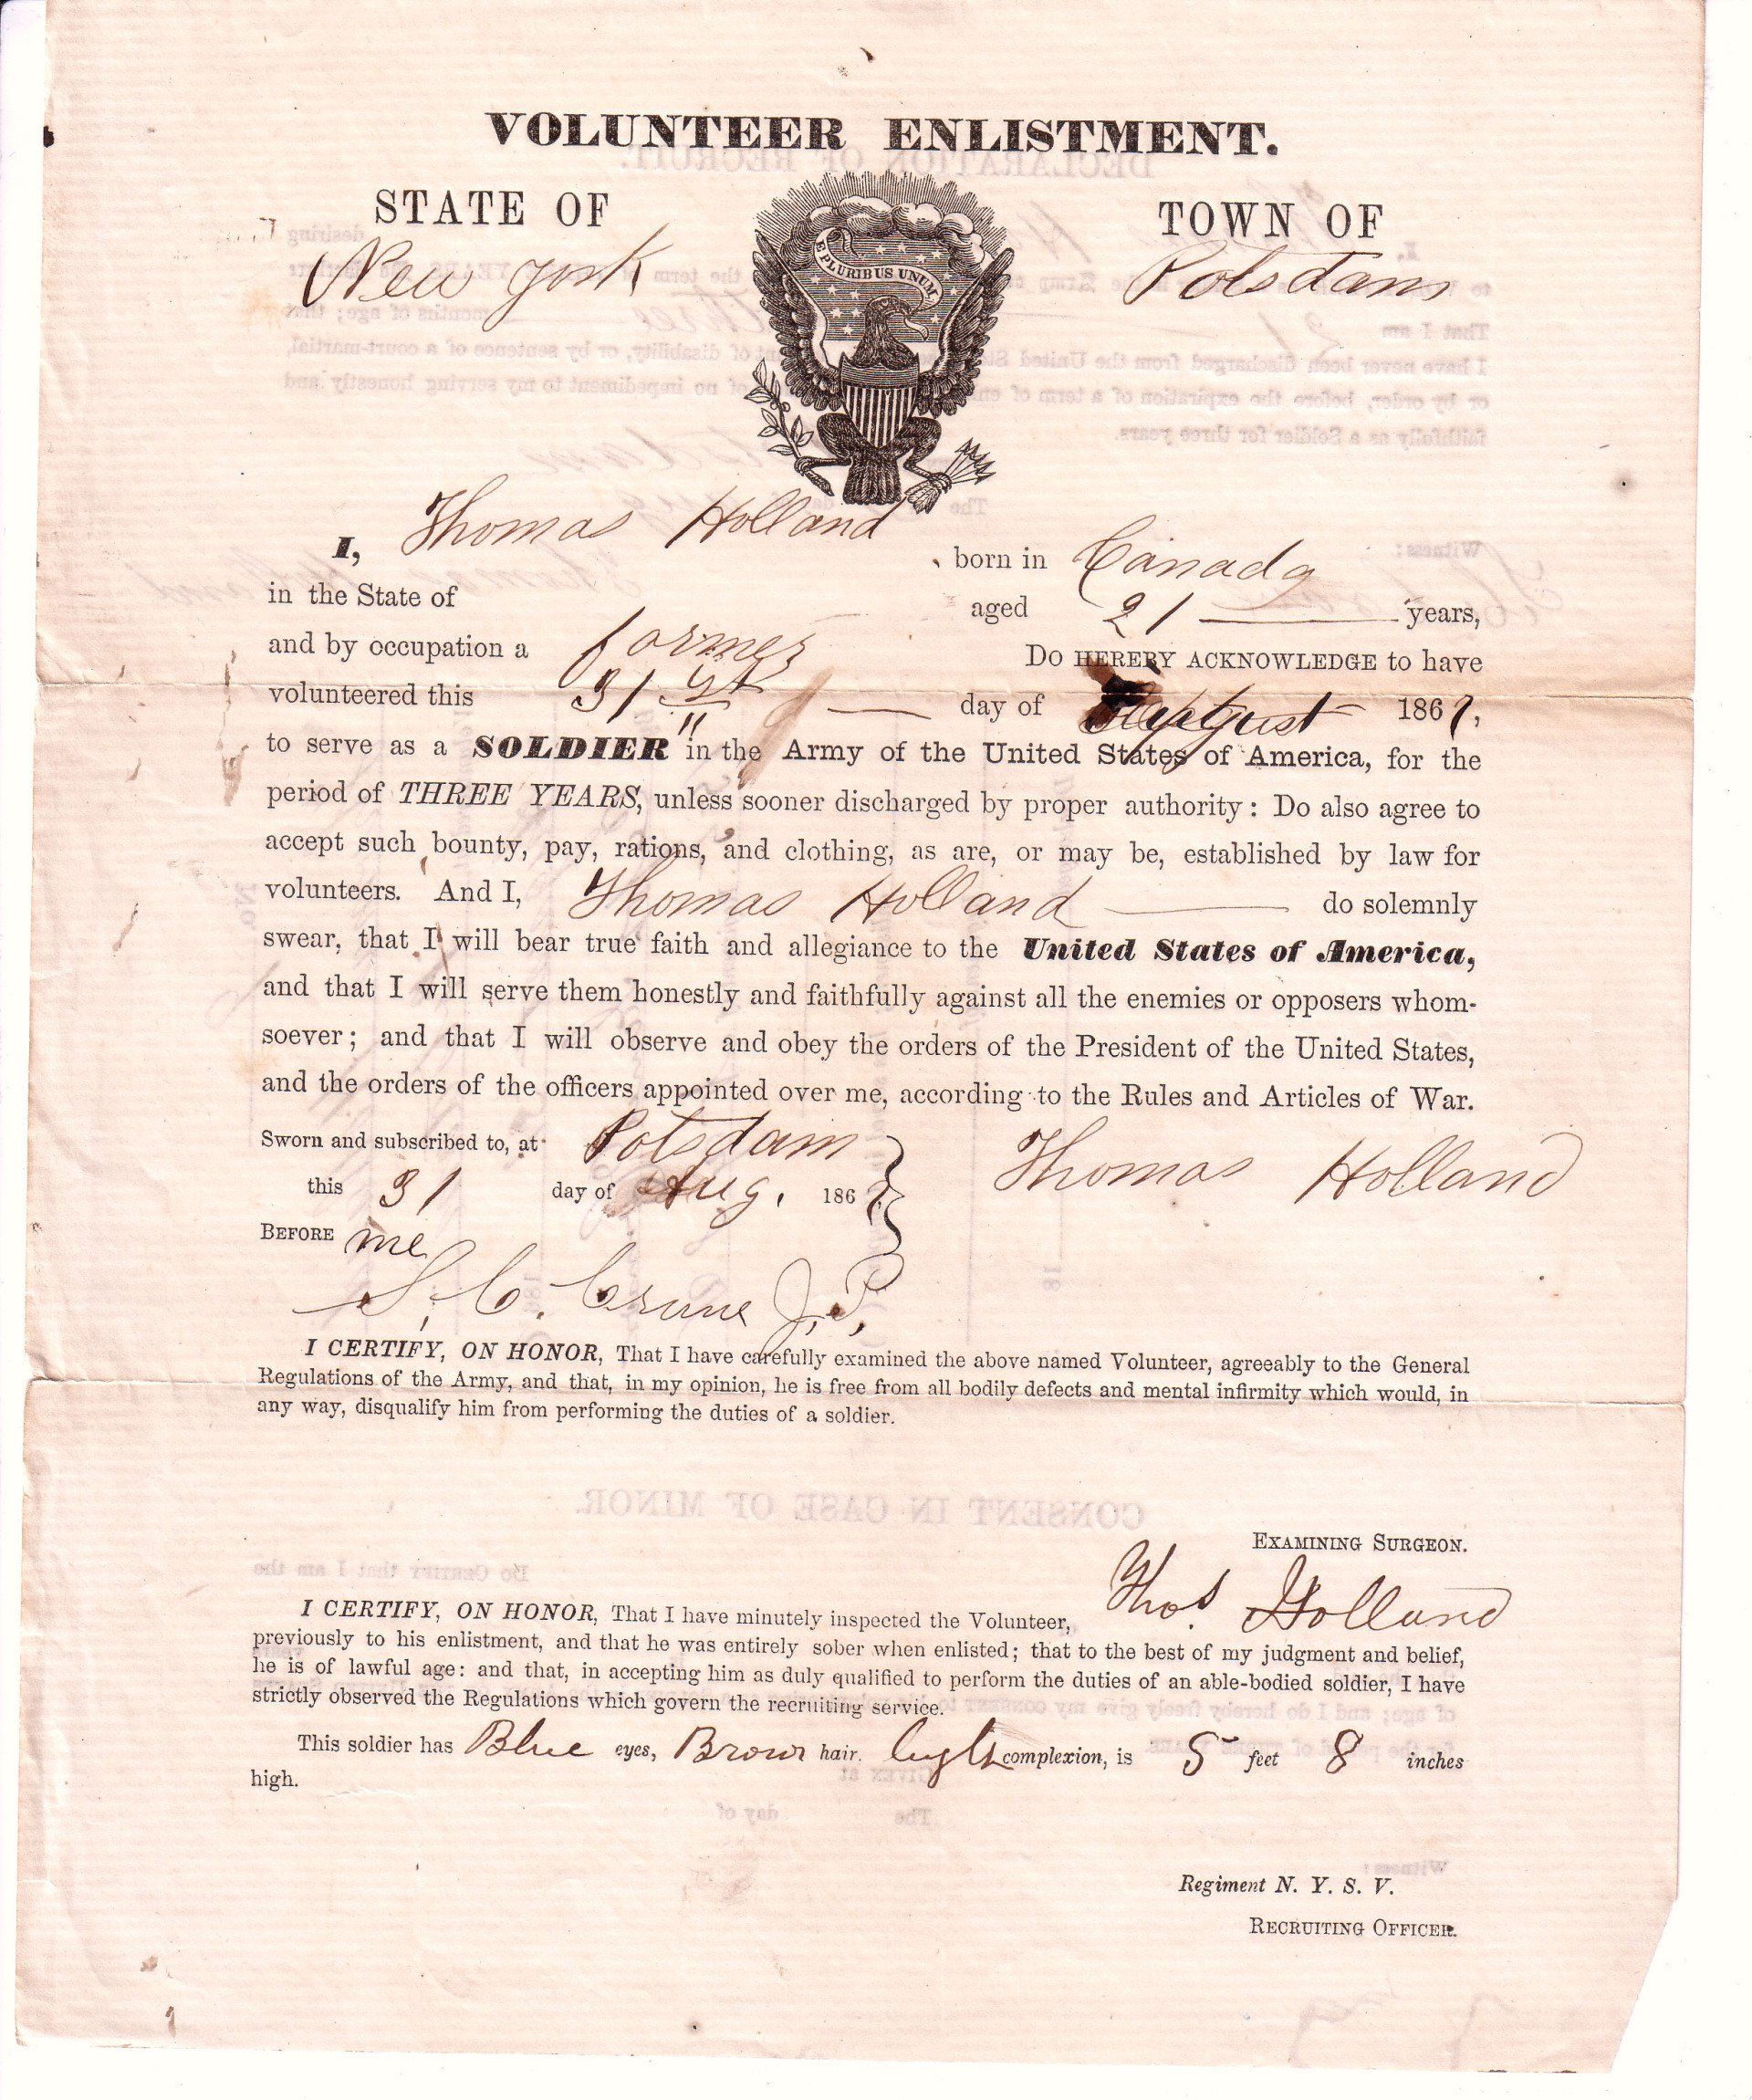 VOLUNTEER ENLISTMENT.
STATE OF
New York
TOWN OF
Potsdam
E PLURIBUS UNUM
I, Thomas Holland born in Canada
in the State of aged 21 years,
and by occupation a farmer Do HEREBY ACKNOWLEDGE to have
volunteered this 31 st day of August 186
to serve as a SOLDIER in the Army of the United States of America, for the
period of THREE YEARS, unless sooner discharged by proper authority: Do also agree to
accept such bounty, pay, rations, and clothing, as are, or may be, established by law for
volunteers. And I, Thomas Holland do solemnly
swear, that I will bear true faith and allegiance to the United States of America,
and that I will serve them honestly and faithfully against all the enemies or opposers whom-
soever; and that I will observe and obey the orders of the President of the United States,
and the orders of the officers appointed over me, according to the Rules and Articles of War.
Sworn and subscribed to, at Potsdam
this 31 day of Aug. 186
Thomas Holland
BEFORE me
S. C. Crane J.P.
I CERTIFY, ON HONOR, That I have carefully examined the above named Volunteer, agreeably to the General
Regulations of the Army, and that, in my opinion, he is free from all bodily defects and mental infirmity which would, in
any way, disqualify him from performing the duties of a soldier.
EXAMINING SURGEON.
I CERTIFY, ON HONOR, That I have minutely inspected the Volunteer, Thos. Holland
previously to his enlistment, and that he was entirely sober when enlisted; that to the best of my judgment and belief,
he is of lawful age: and that, in accepting him as duly qualified to perform the duties of an able-bodied soldier, I have
strictly observed the Regulations which govern the recruiting service.
This soldier has Blue eyes, Brown hair. Light complexion, is 5 feet 8 inches
high.
Regiment N. Y. S. V.
RECRUITING OFFICER.